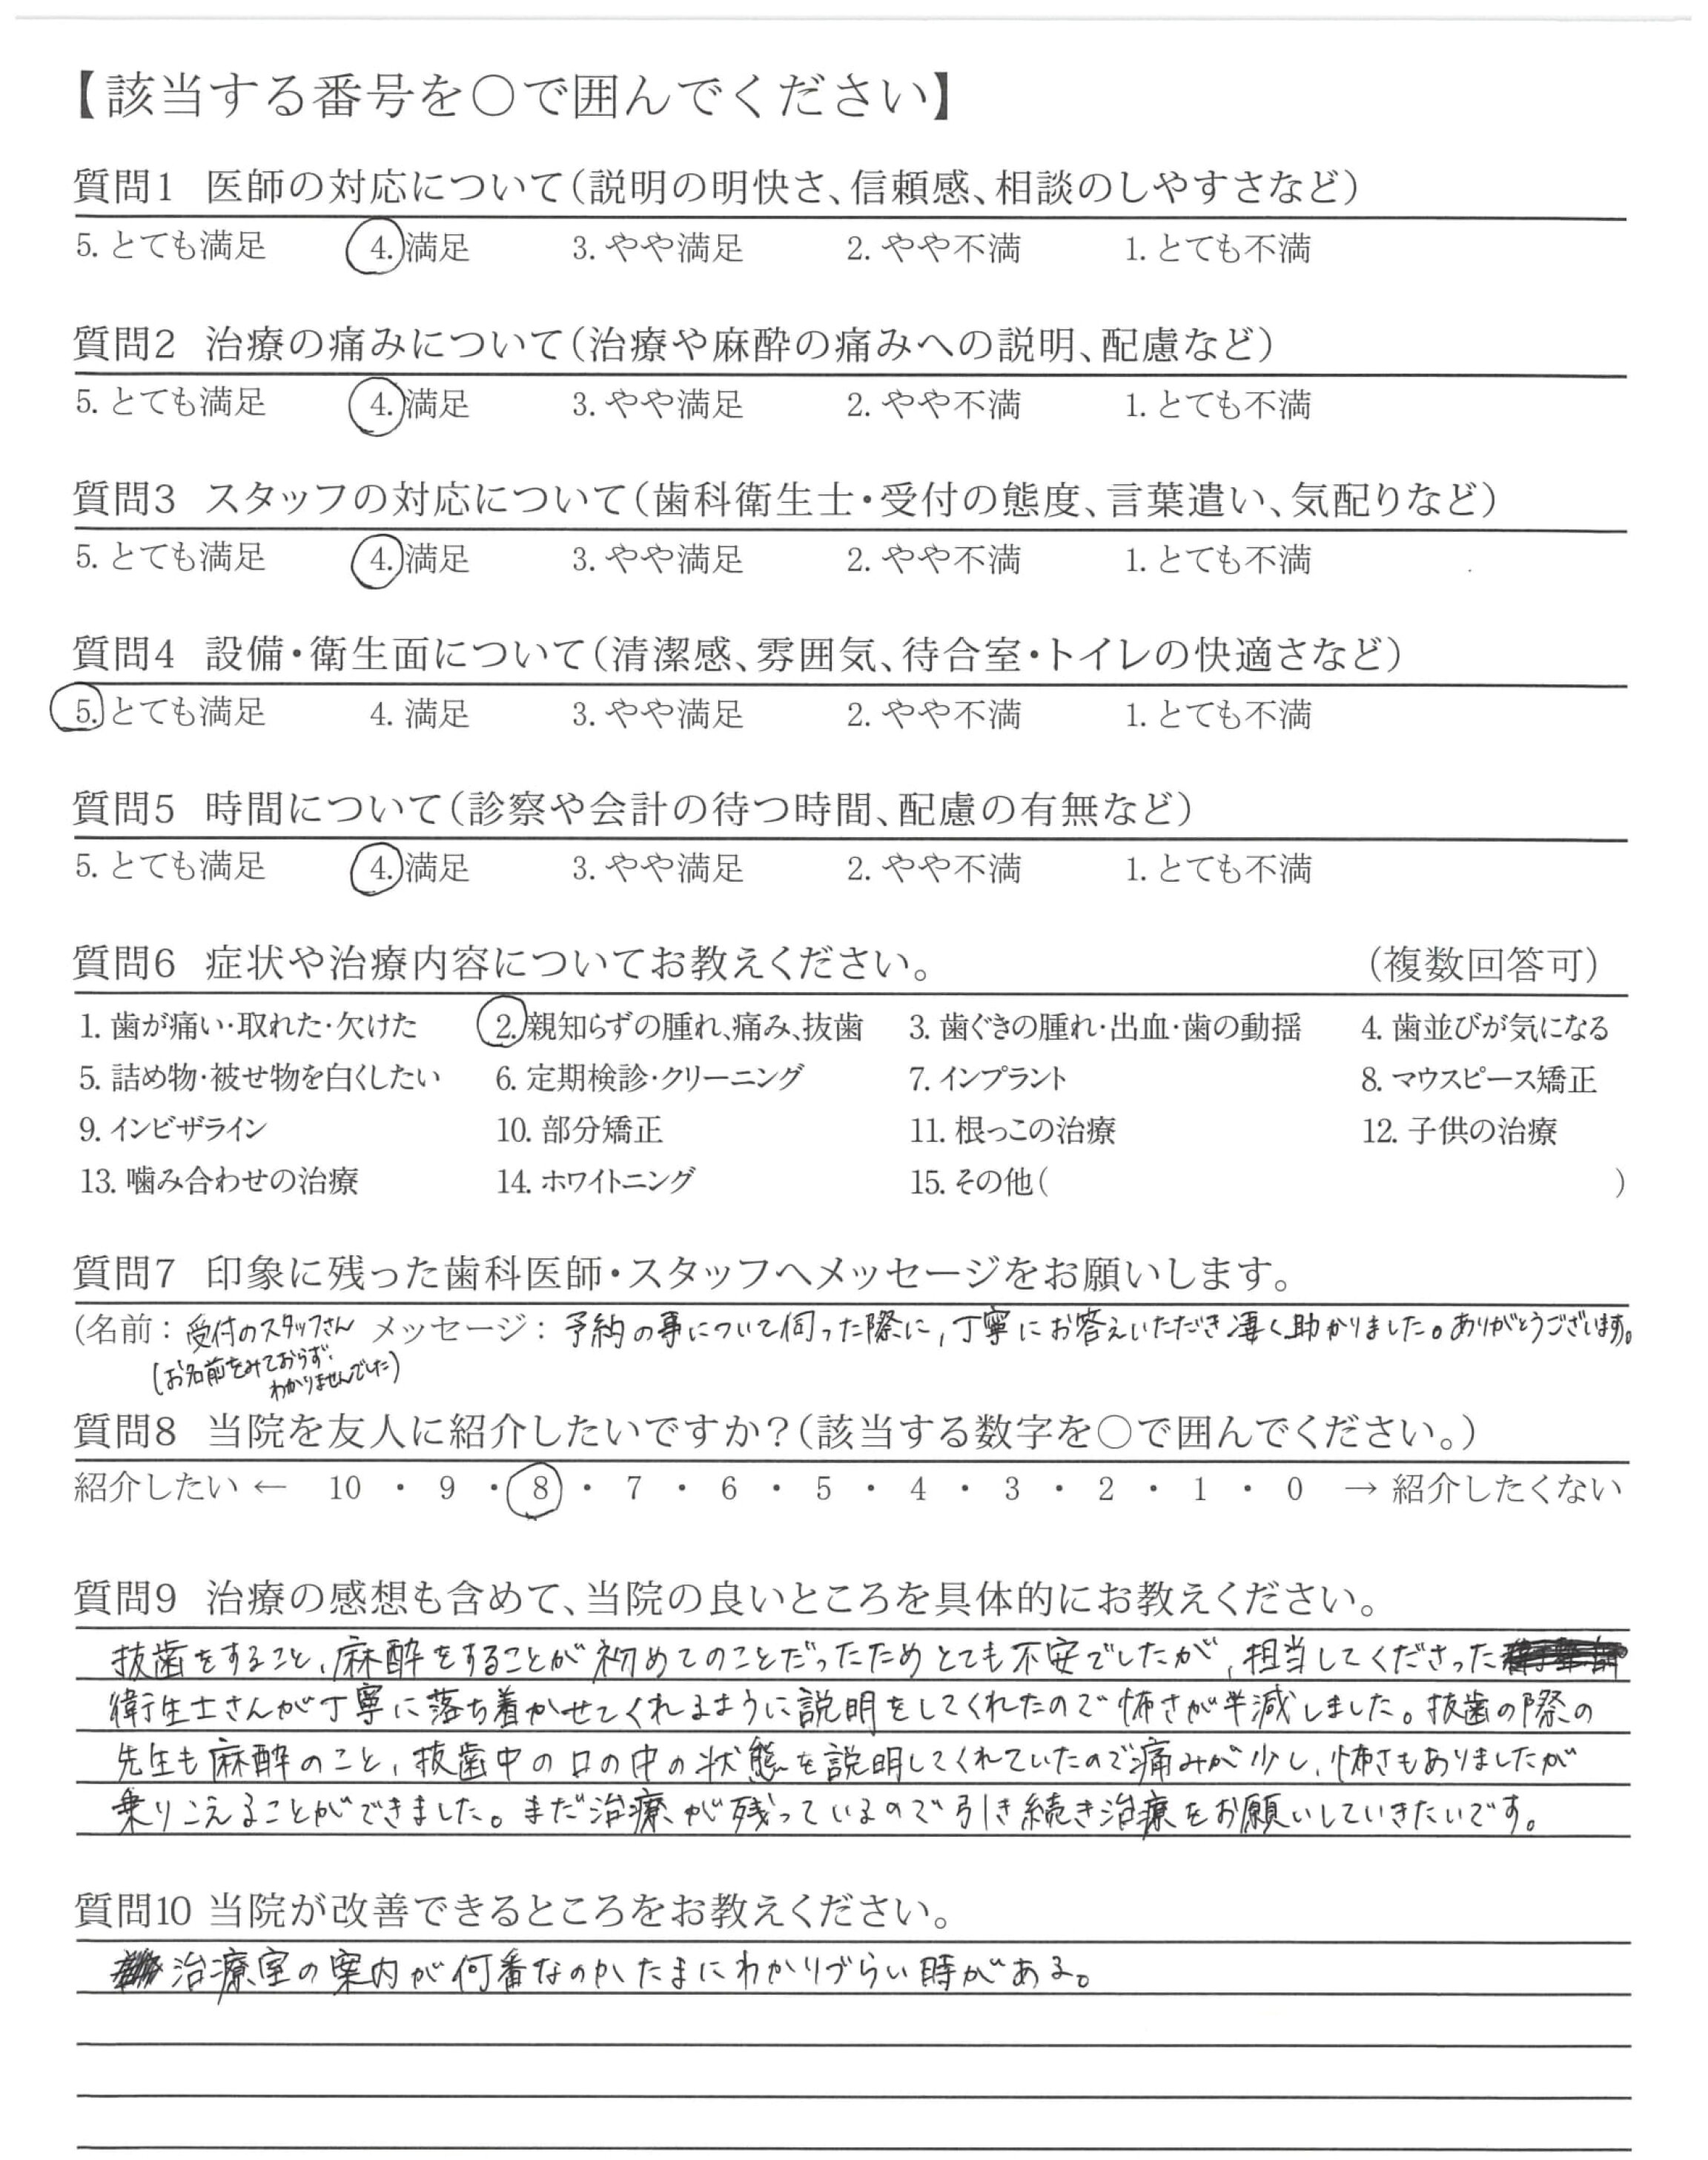 【該当する番号を○で囲んでください】
質問1 医師の対応について(説明の明快さ、信頼感、相談のしやすさなど)
5. とても満足 4. 満足 3. やや満足 2. やや不満 1. とても不満
質問2 治療の痛みについて(治療や麻酔の痛みへの説明、配慮など)
5. とても満足 4. 満足 3. やや満足 2. やや不満 1. とても不満
質問3 スタッフの対応について(歯科衛生士・受付の態度、言葉遣い、気配りなど)
5. とても満足 4. 満足 3. やや満足 2. やや不満 1. とても不満
質問4 設備・衛生面について(清潔感、雰囲気、待合室・トイレの快適さなど)
5. とても満足 4. 満足 3. やや満足 2. やや不満 1. とても不満
質問5 時間について(診察や会計の待つ時間、配慮の有無など)
5. とても満足 4. 満足 3. やや満足 2. やや不満 1. とても不満
質問6 症状や治療内容についてお教えください。 (複数回答可)
1. 歯が痛い・取れた・欠けた 2. 親知らずの腫れ、痛み、抜歯 3. 歯ぐきの腫れ・出血・歯の動揺 4. 歯並びが気になる
5. 詰め物・被せ物を白くしたい 6. 定期検診・クリーニング 7. インプラント 8. マウスピース矯正
9. インビザライン 10. 部分矯正 11. 根っこの治療 12. 子供の治療
13. 噛み合わせの治療 14. ホワイトニング 15. その他( )
質問7 印象に残った歯科医師・スタッフへメッセージをお願いします。
(名前: 受付のスタッフさん メッセージ: 予約の事について伺った際に、丁寧にお答えいただき凄く助かりました。ありがとうございます。
(お名前をみておらず、
わかりませんでした)
質問8 当院を友人に紹介したいですか?(該当する数字を○で囲んでください。)
紹介したい ← 10 ・ 9 ・ 8 ・ 7 ・ 6 ・ 5 ・ 4 ・ 3 ・ 2 ・ 1 ・ 0 → 紹介したくない
質問9 治療の感想も含めて、当院の良いところを具体的にお教えください。
抜歯をすること、麻酔をすることが初めてのことだったためとても不安でしたが、担当してくださった
衛生士さんが丁寧に落ち着かせてくれるように説明をしてくれたので怖さが半減しました。抜歯の際の
先生も麻酔のこと、抜歯中の口の中の状態を説明してくれていたので痛みが少し、怖さもありましたが
乗りこえることができました。まだ治療が残っているので引き続き治療をお願いしていきたいです。
質問10 当院が改善できるところをお教えください。
治療室の案内が何番なのかたまにわかりづらい時がある。